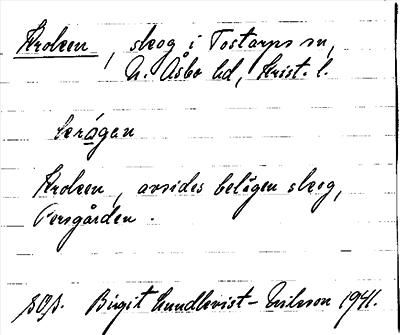 Kroken, skog i Tostarps sn,
N. Åsbo hd, Krist. l.
Kroken, avsides belägen skog,
Persgården.
Birgit Lundkvist-Nilsson 1941.